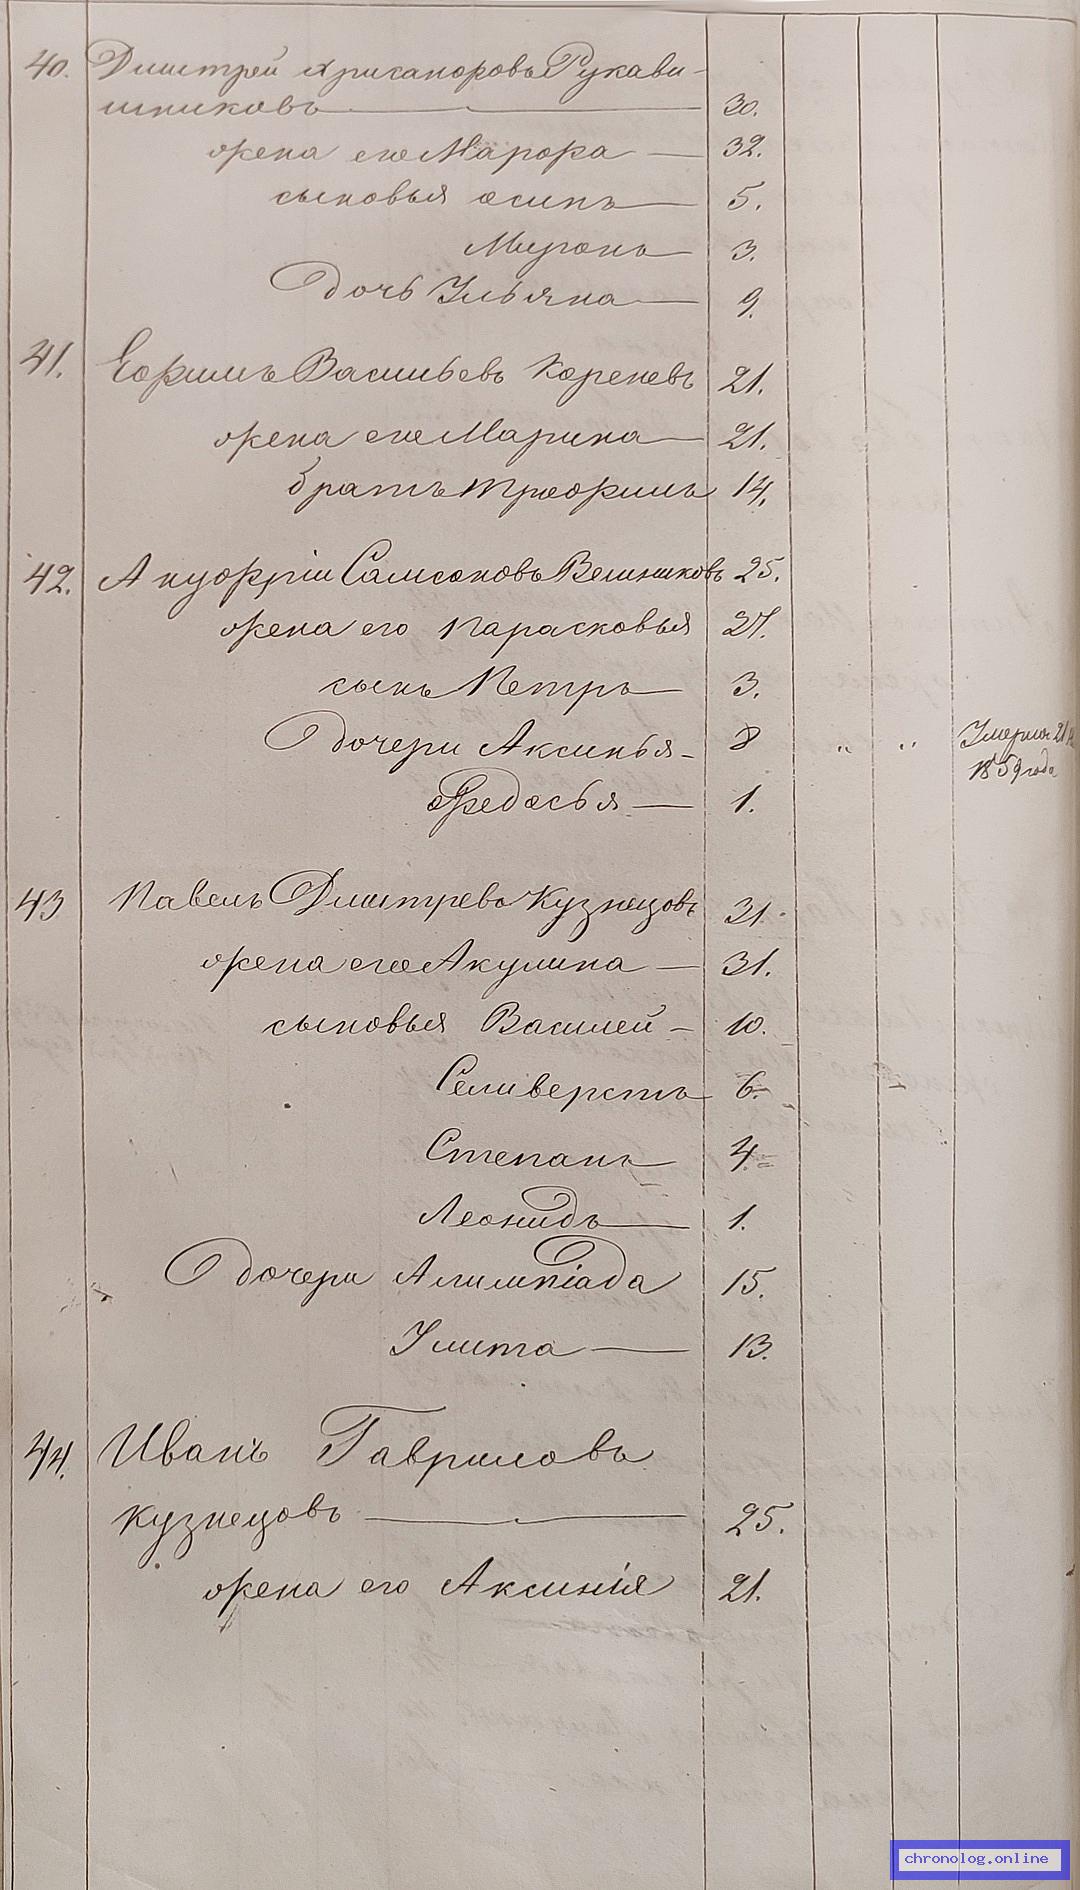 40. Дмитрей Хрисанфоровъ Рукави-
шниковъ 30.
жена его Марфа 32.
сыновья Осипъ 5.
Миронъ 3.
Дочь Ульяна 9.
41. Ефимъ Васильевъ Кореневъ 21.
жена его Марина 21.
братъ Трофимъ 14.
42.Ануфрій Самсоновъ Вешняковъ 25.
жена его Парасковья 27.
сынъ Петръ 3.
Дочери Аксинья 8 " " Умерла 21
1859 года
Федосья 1.
43 Павелъ Дмитрева Кузнецовъ 31.
жена его Акулина 31.
сыновья Василей 10.
Селиверстъ 6.
Степанъ 4.
Леонидъ 1.
Дочери Алимпіада 15.
Улита 13.
44. Иванъ Гавриловъ
Кузнецовъ 25.
жена его Аксинія 21.
chronolog.online